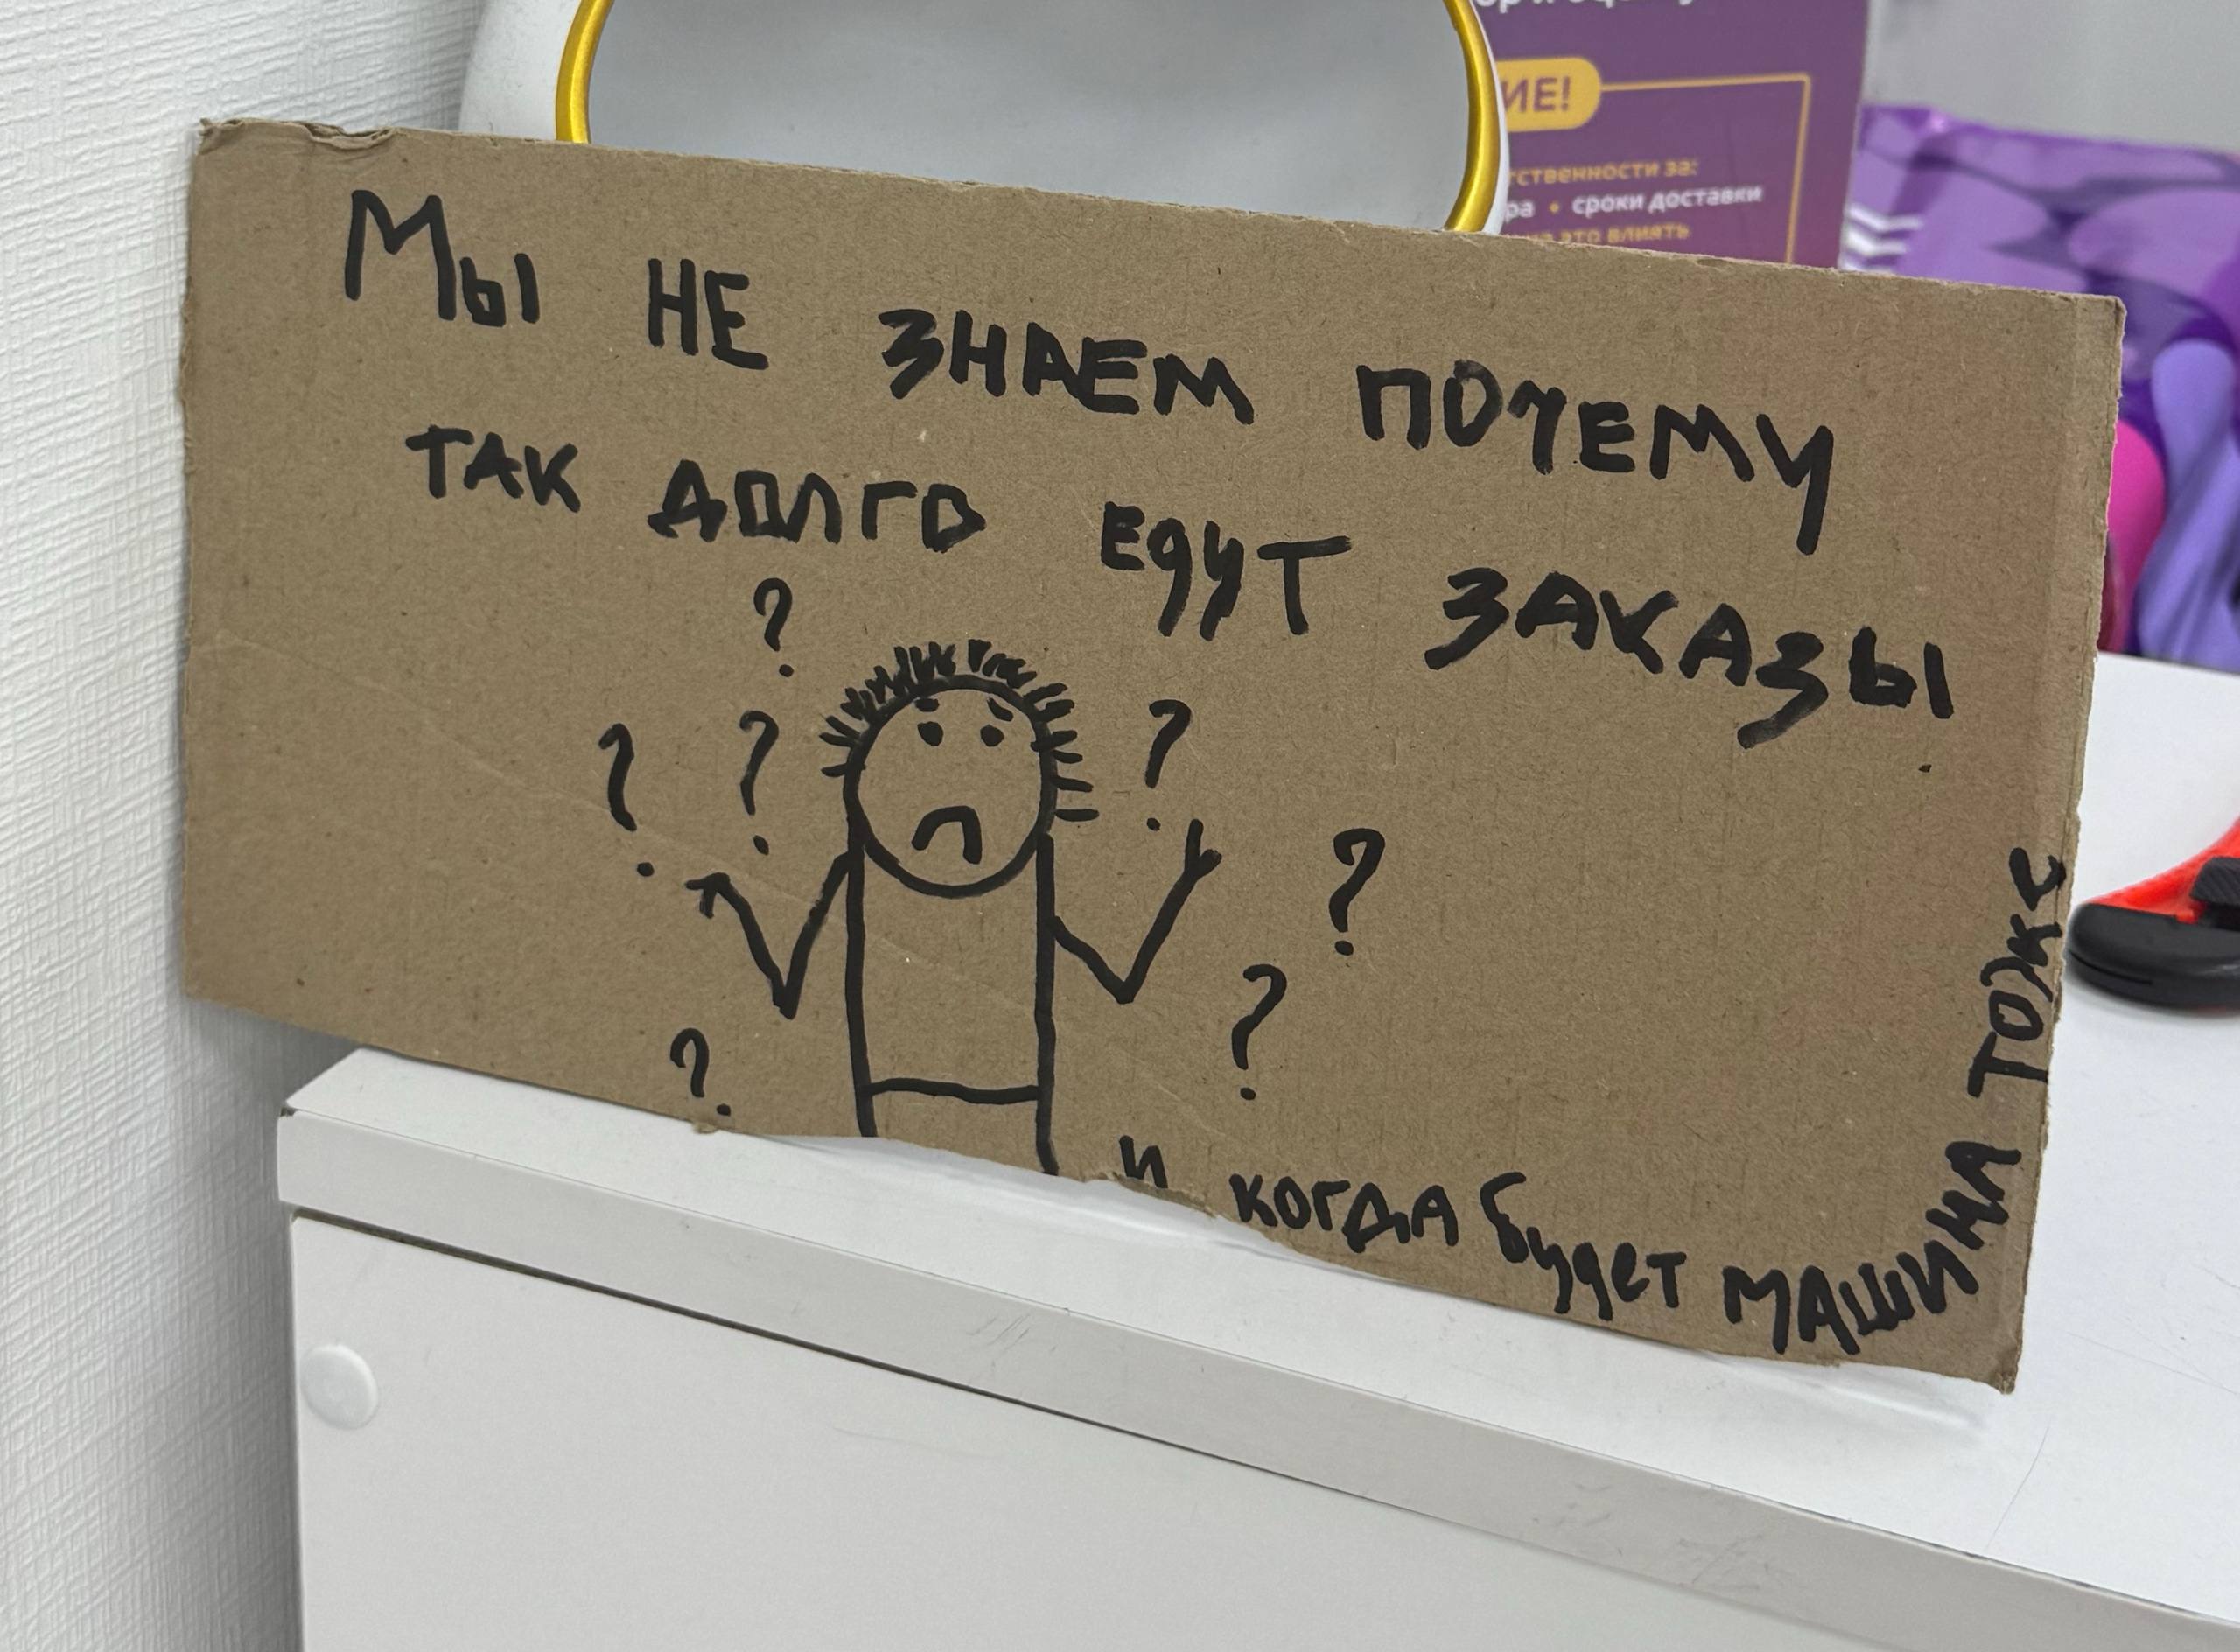 ИЕ!
сроки доставки
это влиять
Мы НЕ ЗНАЕМ ПОЧЕМУ
ТАК ДОЛГО ЕДУТ ЗАКАЗЫ.
?
? ? ?
?
?
?
и КОГДА будет МАШИНА ТОЖЕ